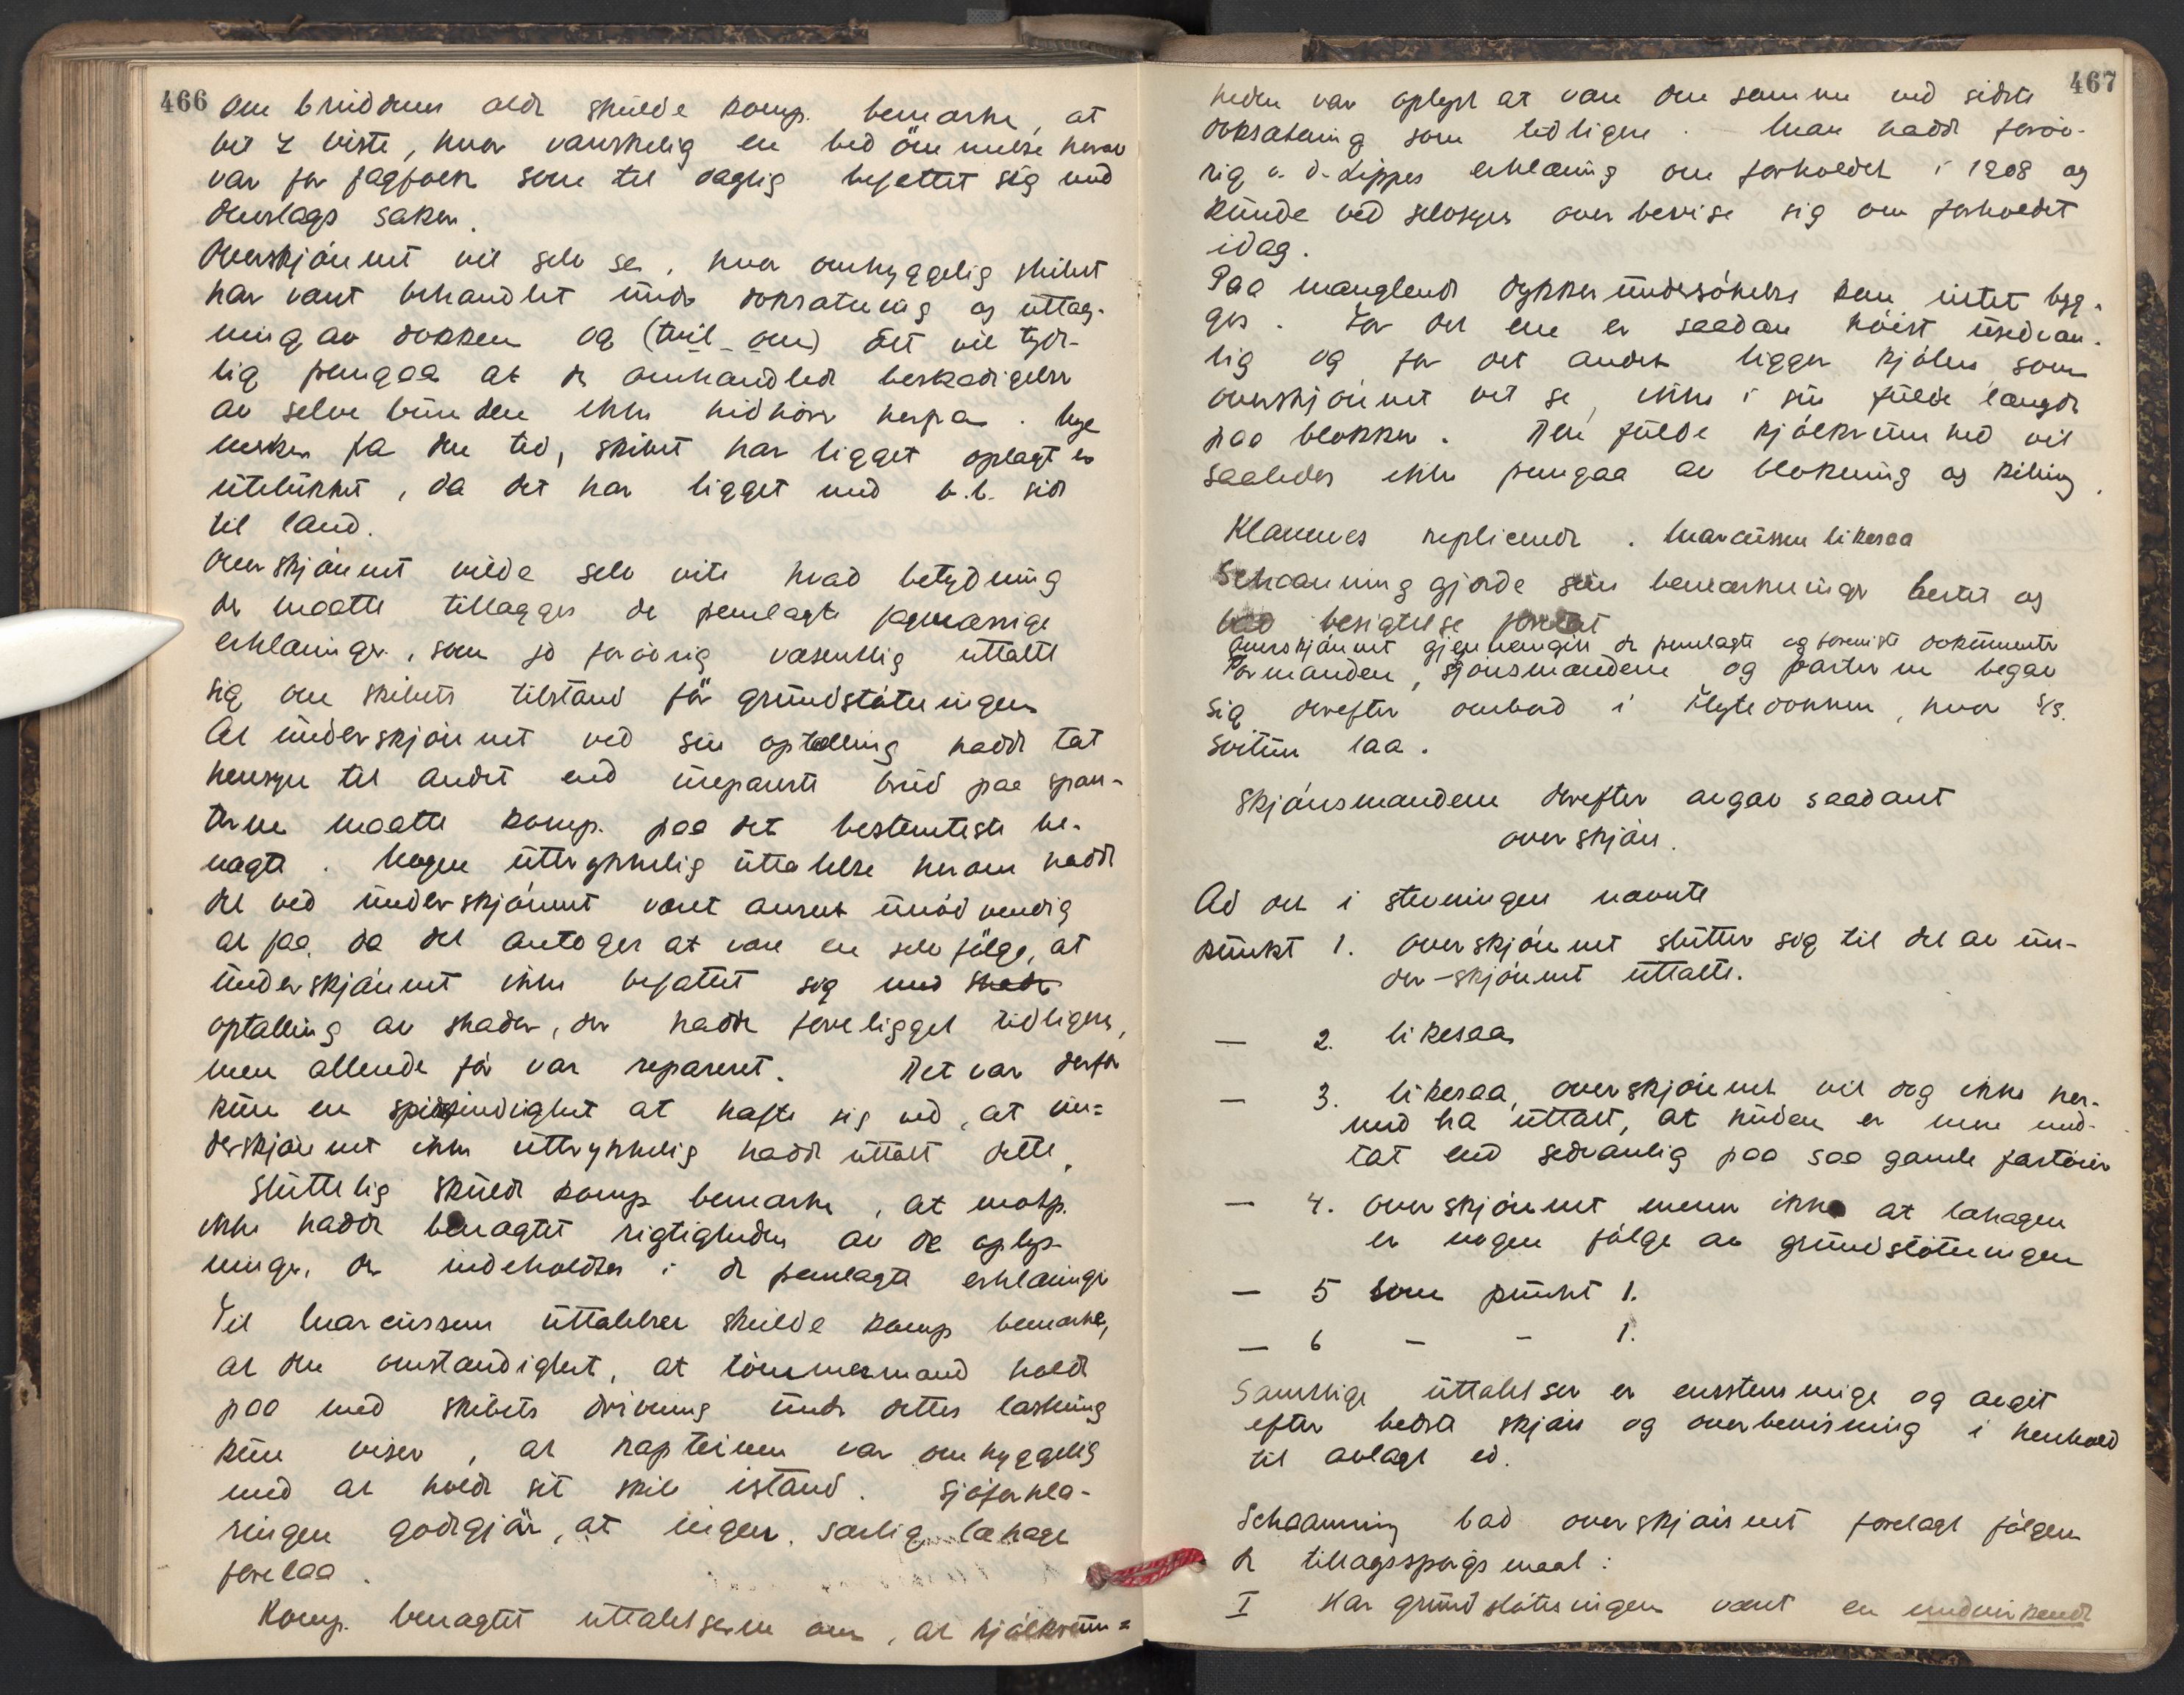 466
Om bruddenes alder skulde komp. bemærke, at
bil 4 viste, hvor vanskelig en bedömmelse herav
var for fagfolk som til daglig befattet sig med
denslags saker.
Overskjönnet vil selv se, hvor omhyggelig skibet
har været behandlet under doksætning og uttag-
ning av dokken og (tvil om) det vil tyde-
lig fremgaa at de omhandlede beskadigelser
av selve bunden ikke hidhörer herfra.
merker fra den tid, skibet har ligget oplagt er
utelukket, da det har ligget med b.b. side
til land.
Overskjönnet vilde selv vite hvad betydning
der maatte tillægges de fremlagte fagmæssige
erklæringer, som jo forövrig væsentlig uttalte
sig om skibets tilstand för grundstötningen
At underskjönnet ved sin optælling hadde tat
hensyn til andet end ureparerte brud paa span-
terne maatte komp. paa det bestemteste be-
nægte. Nogen uttrykkelig uttalelse herom hadde
det ved underskjönnet været anset unödvendig
at faa, da det antoges at være en selvfölge, at
underskjönnet ikke befattet sig med skader
optælling av skader, der hadde foreligget tidligere,
men allerede för var reparert. Det var derfor
kun en spidsfindighet at hæfte sig ved, at un=
derskjönnet ikke uttrykkelig hadde uttalt dette,
Sluttelig skulde komp bemærke, at motp.
ikke hadde benægtet rigtigheden av de oplys-
ninger, der indeholdtes i de fremlagte erklæringer
Til Marcussens uttalelser skulde komp bemærke,
at den omstændighet, at tömmermand holdt
paa med skibets drivning under dettes lastning
kun viser, at kapteinen var omhyggelig
med at holde sit skib istand. Sjöforkla-
ringen godtgjör, at ingen særlig lækage
forelaa.
Komp. benægtet uttalelserne om, at kjölkrum=
467
heden var oplyst at være den samme ved sidste
doksætning som tidligere. Man hadde foröv-
rig v. d. Lippes erklæring om forholdet i 1908 og
kunde ved selvsyn overbevise sig om forholdet
idag.
Paa manglende dykkerundersökelse kan intet byg-
ges. For det ene er saadan höist usedvan-
lig og for det andet ligger kjölen, som
overskjönnet vil se, ikke i sin fulde længde
paa blokken. Den fulde kjölkrumhed vil
saaledes ikke fremgaa av blokning og kiling.
Klavenes replicerede. Marcussen likesaa
Schaanning gjorde sine bemærkninger hertil og
bad besigtelse foretat
Overskjönnet gjennemgik de fremlagte og foreviste dokumenter
Formanden, skjönsmændene og parterne begav
sig derefter ombord i flytedokken, hvor S/S.
laa.
Skjönsmændene derefter avgav saadant
overskjön.
Ad det i stevningen nævnte
punkt 1. Overskjönnet slutter sig til det av un-
der-skjönnet uttalte.
— 2. likesaa
— 3. likesaa, overskjönnet vil dog ikke her-
med ha uttalt, at huden er mere med-
tat end sedvanlig paa saa gamle fartöier
— 4. Overskjönnet mener ikke at lækagen
er nogen fölge av grundstötningen
— 5 som punkt 1.
— 6 — - 1.
Samtlige uttalelser er enstemmige og avgit
efter bedste skjön og overbevisning i henhold
til avlagt ed.
Schaanning bad overskjönnet forelagt fölgen
de tillægsspörgsmaal:
I Har grundstötningen været en medvirkende